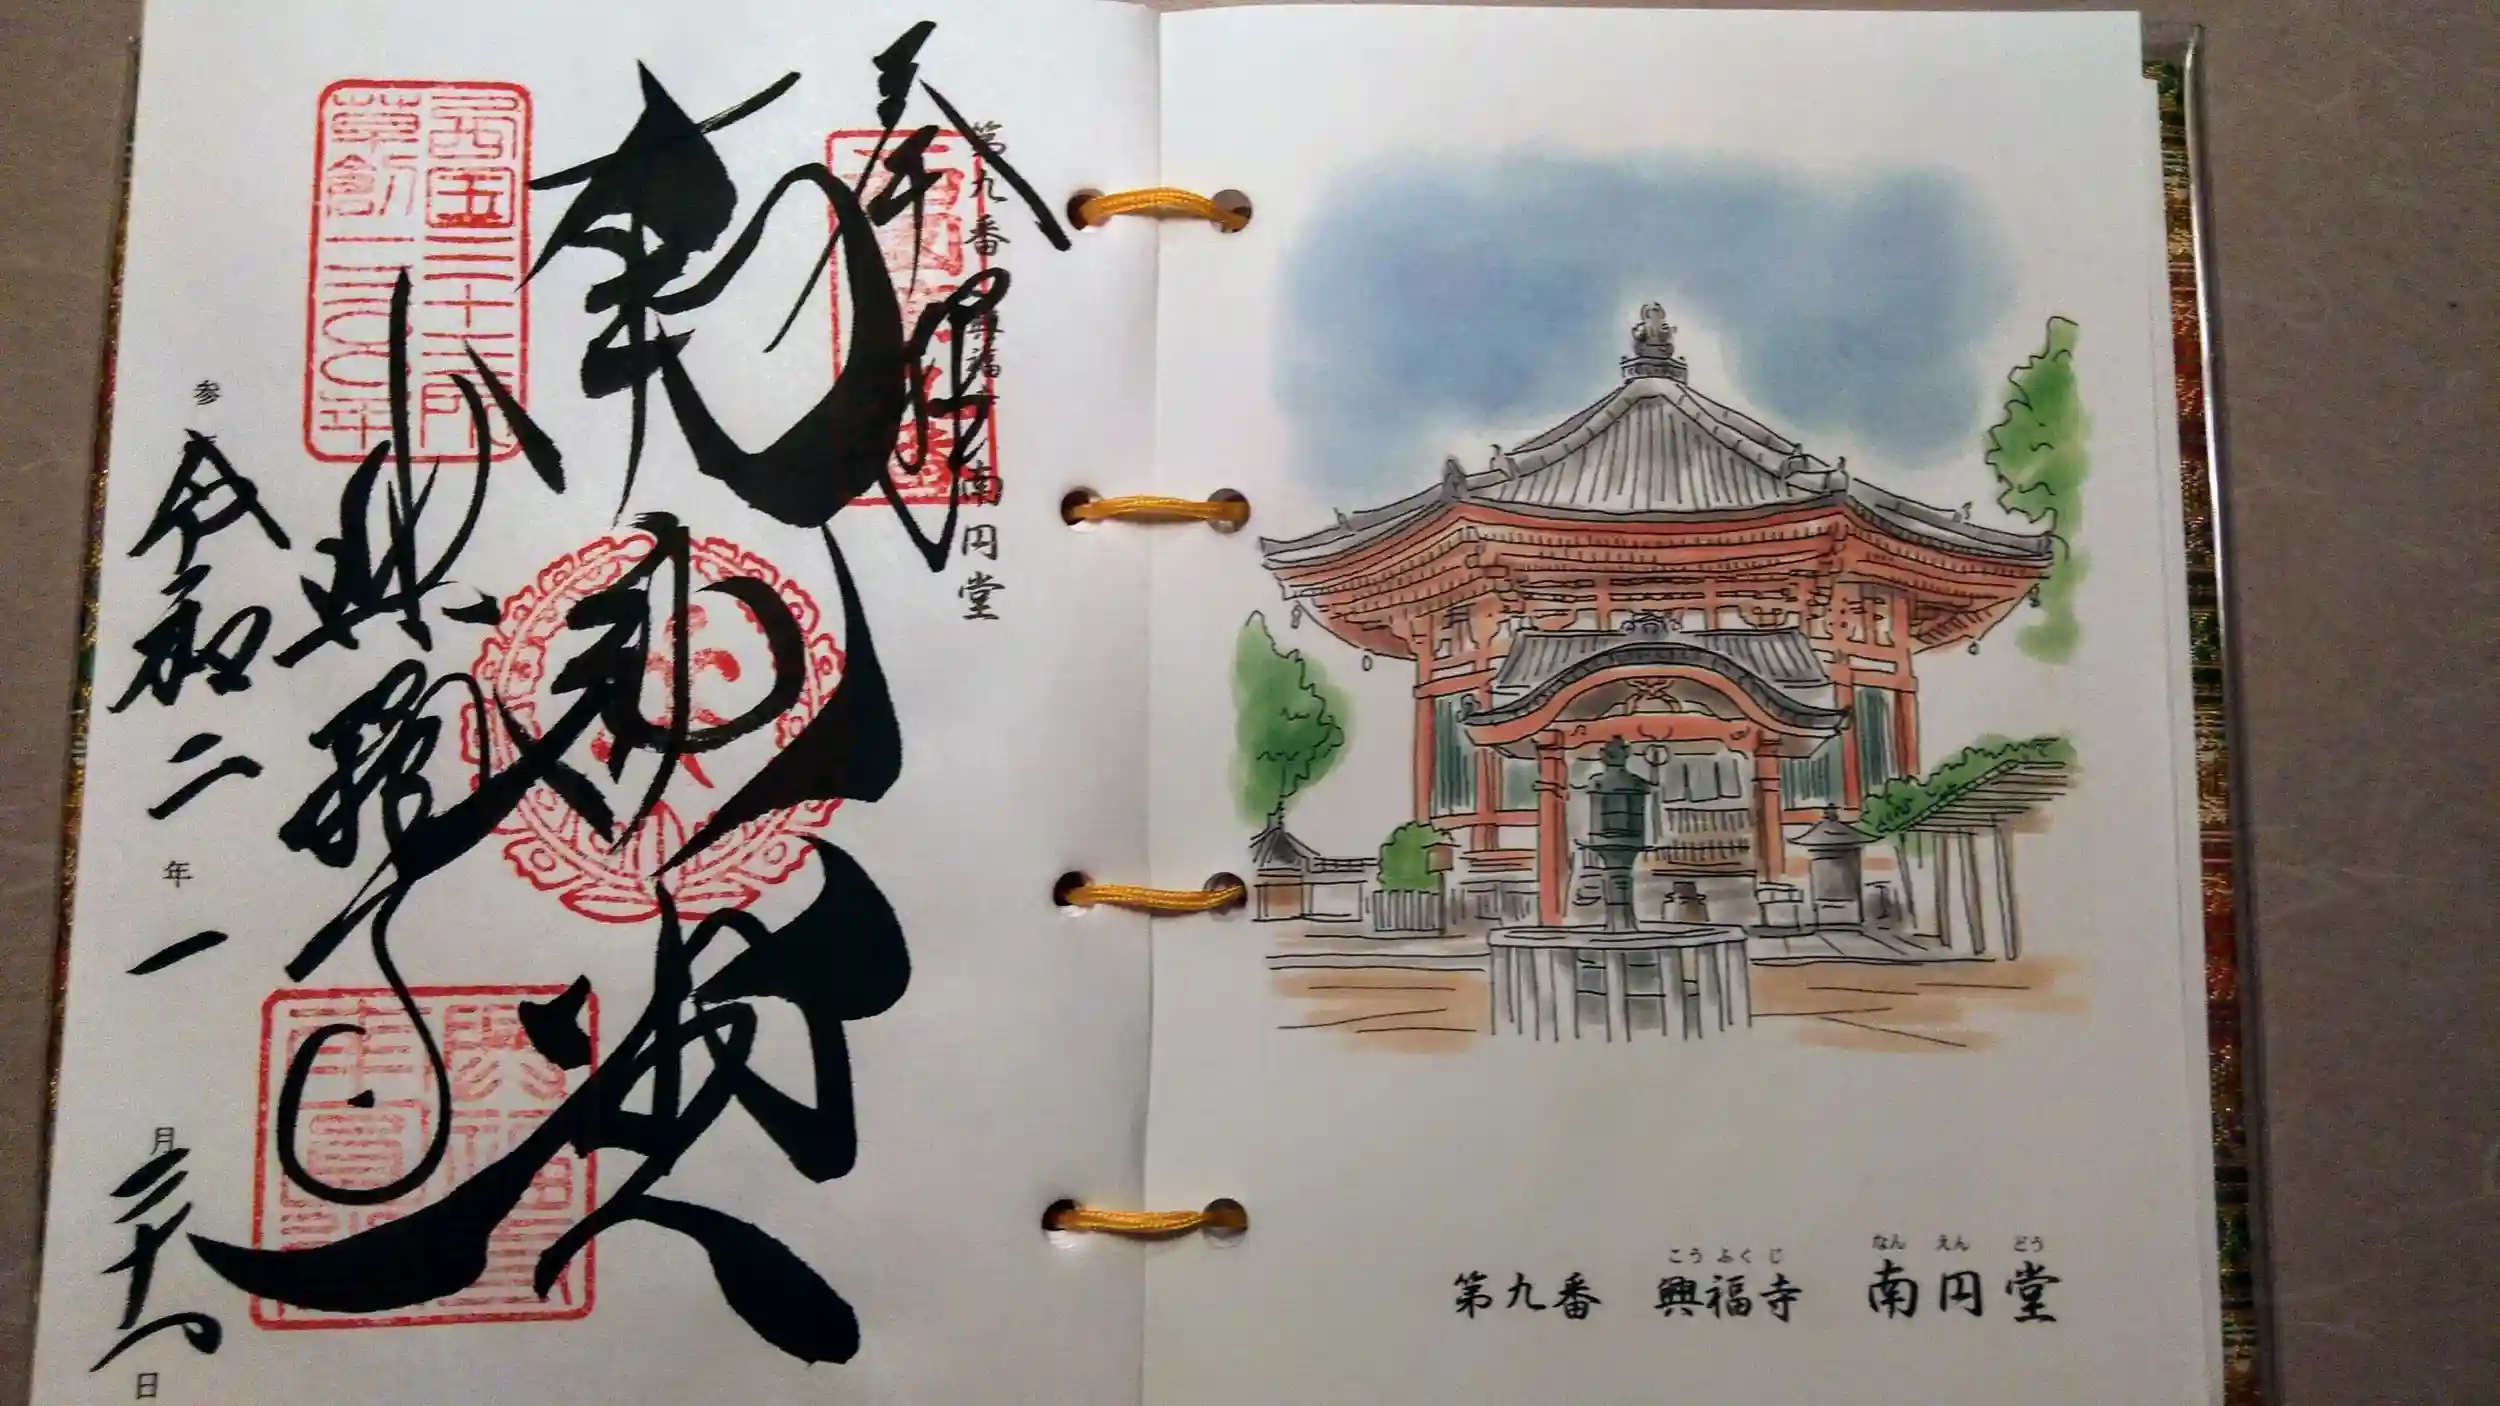 奉拝
第九番 興福寺 南円堂
南円堂
西国三十三所
草創一三〇〇年
興福寺
参
令和二年一月二十八日
こうふくじ なんえんどう
第九番 興福寺 南円堂